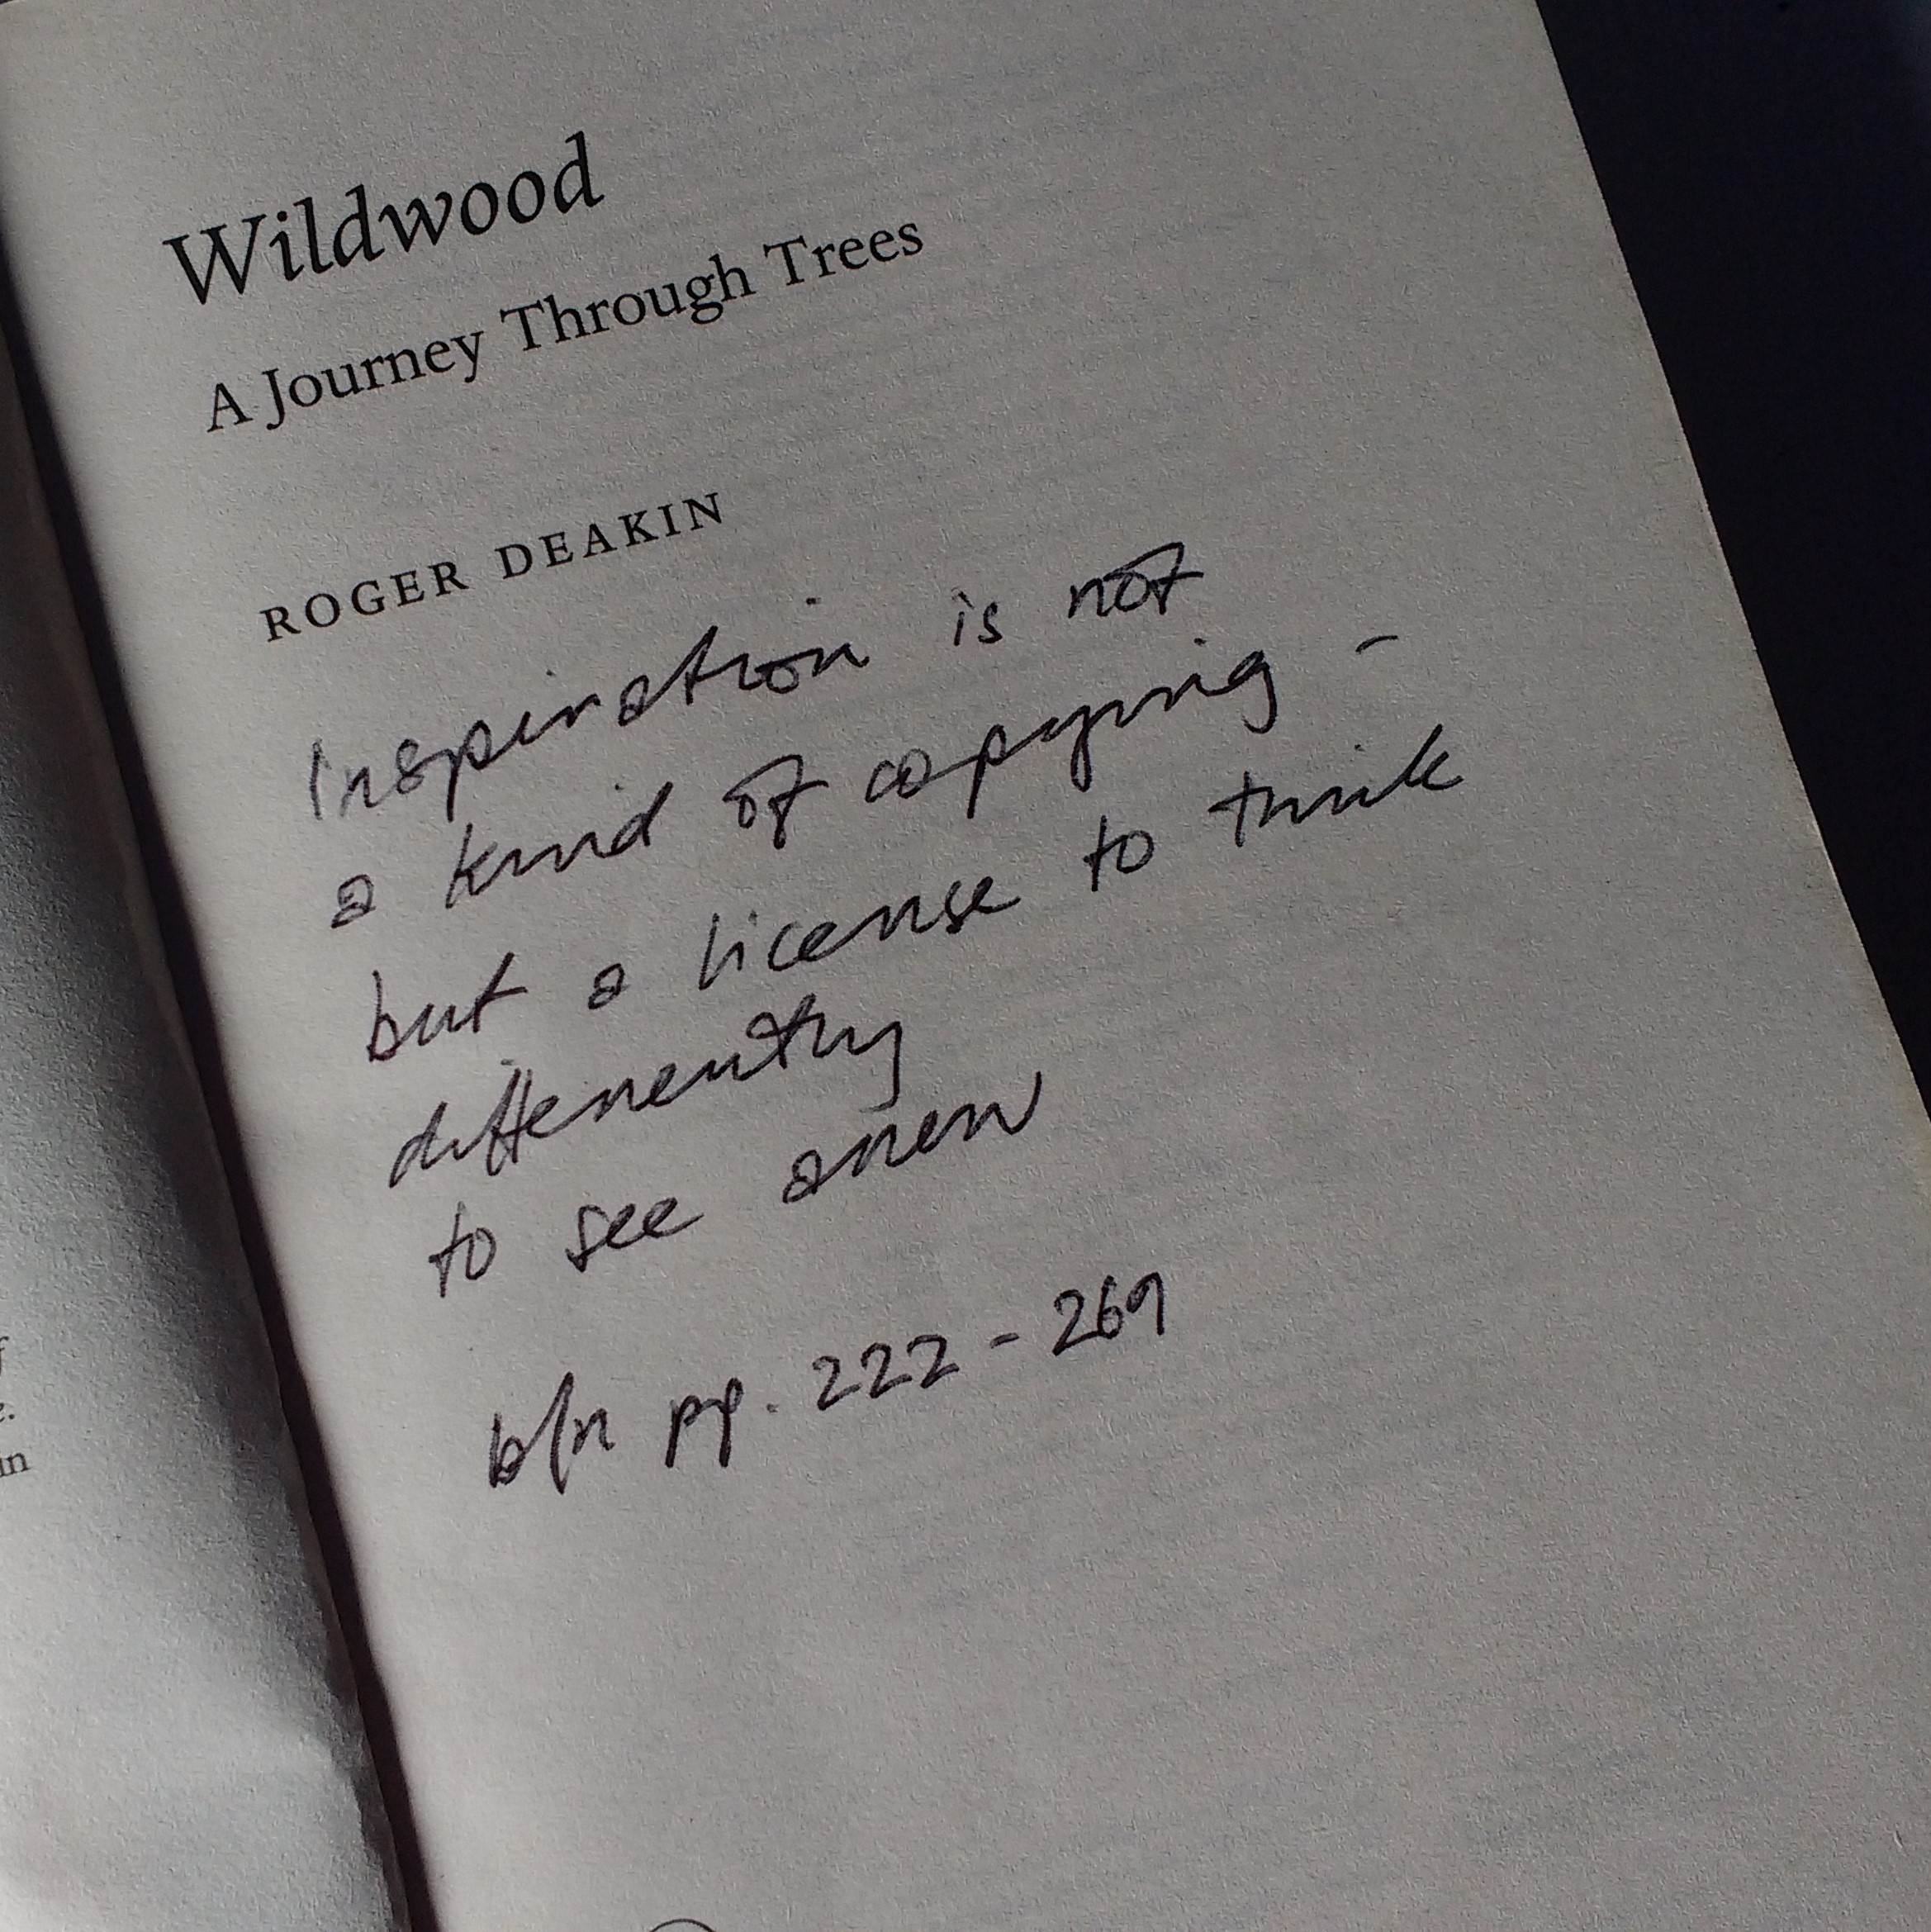 Wildwood
A Journey Through Trees
ROGER DEAKIN
Inspiration is not
a kind of copying -
but a license to think
differently
to see anew
b/n pp. 222 - 269
f
e.
in